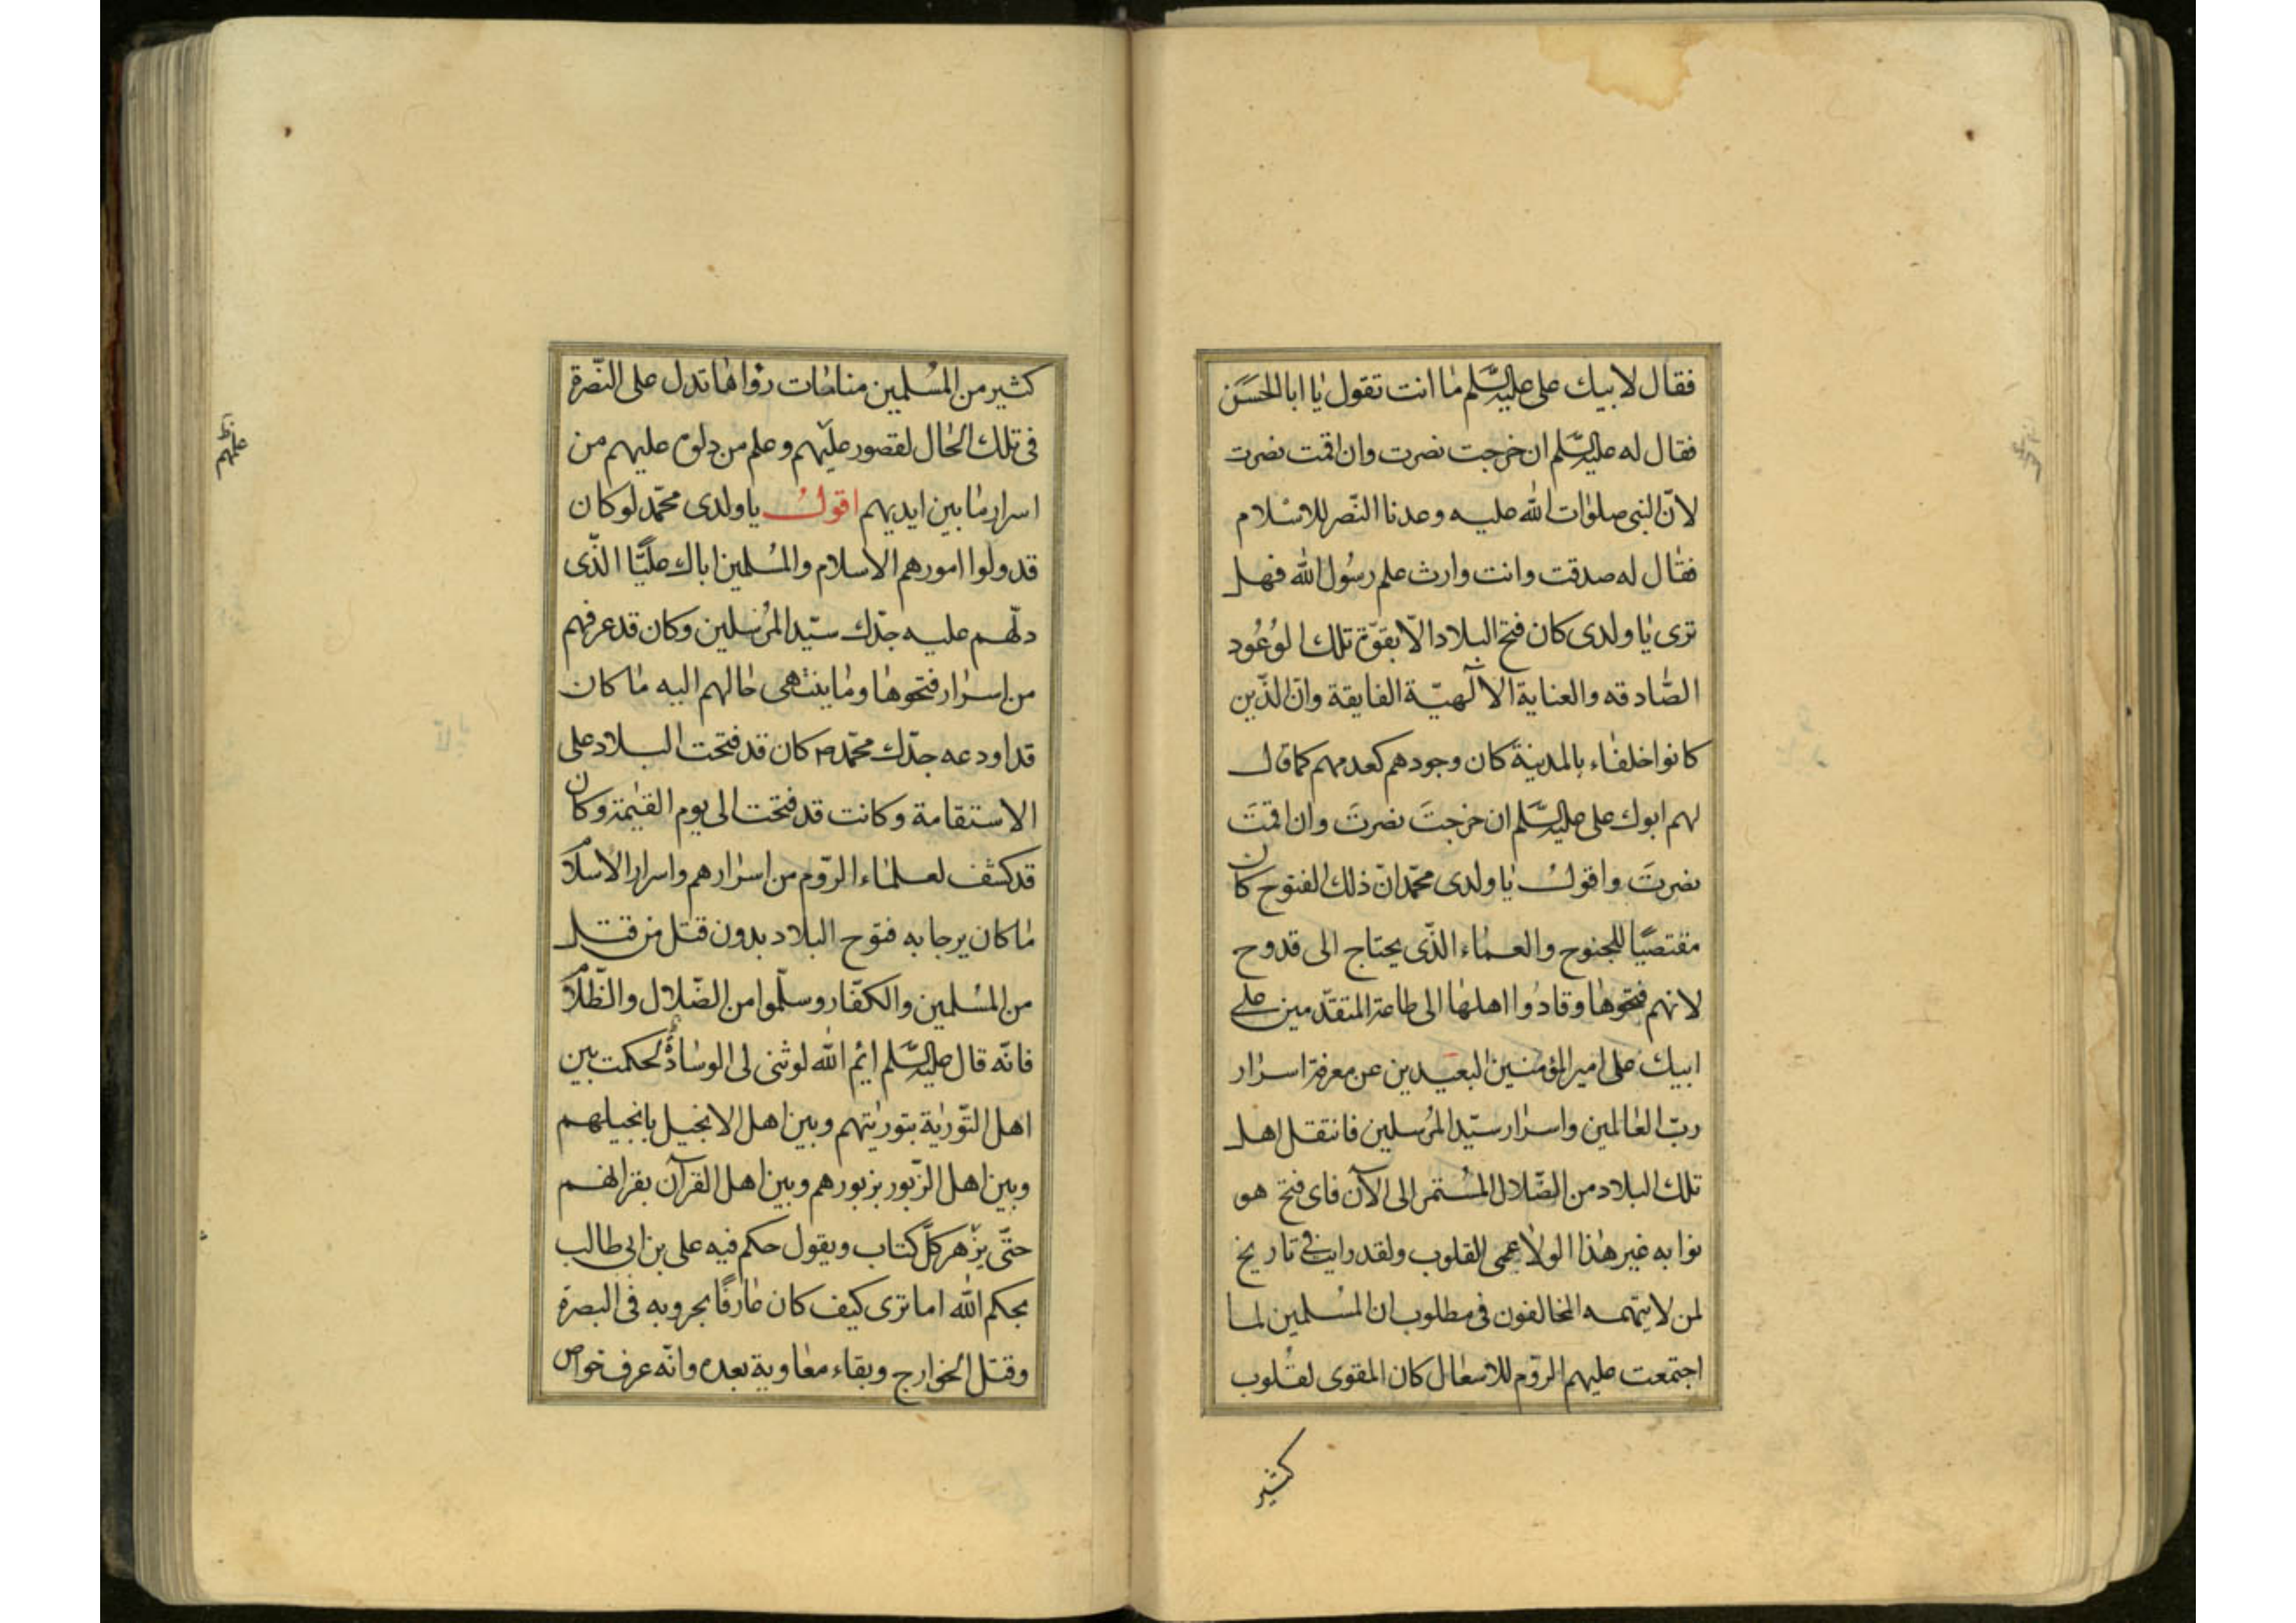 فقال لابيك على عليه السّلم ما انت تقول يا ابا الحَسَن
فقال له عليه السّلم ان خرجت نصرت وان اقمت نصرت
لانّ النبى صلوات الله عليه وعدنا النّصر للاسلام
فقال له صدقت وانت وارث علم رسُول الله فهل
ترى يا ولدى كان فتح البلاد الّا بقوّة تلك الوُعُود
الصّادقه والعناية الالٓهيّة الفايقة وانّ الذّين
كانوا خلفاء بالمدينة كان وجودهم كعدمهم كما قال
لهم ابوك على عليه السّلم ان خرجتَ نصرتَ وان اقمتَ
نصرتَ واقولُ يا ولدى محمّد انّ ذلك الفتوح كان
مقتصيًا للجنوح والعماء الذّى يحتاج الى قدوح
لانهم فتحوها وقادُوا اهلها الى طاعة المتقدّمين على
ابيك على امير المؤمنين البعيدين عن معرفة اسرار
ربّ العالمين واسرار سيّد المرُسلين فانتقل اهل
تلك البلاد من الضّلال المسُتمر الى الآن فاى فتح هو
نوابه غير هذا الولا عمى القلوب ولقد رايت فى تاريخ
لمن لا يتهمه المخالفون فى مطلوب ان المسُلمين لما
اجتمعت عليهم الرّوم للاسعال كان المقوى لقلُوب
كثير
كثير من المسُلمين منامات رؤاها تدل على النّصرة
فى تلك الحال لقصور عليهم وعلم من دلوه عليهم من
علمهم
اسرار ما بين ايديهم اقولُ يا ولدى محمّد لو كان
قد ولوا امورهم الاسلام والمسُلمين اباك عليًّا الذّى
دلّهم عليه جدّك سيّد المرُسلين وكان قد عرفهم
من اسرار فتحوها وما ينتهى حالهم اليه ما كان
قد اودعه جدّك محمّد ص كان قد فتحت البلاد على
الاستقامة وكانت قد فتحت الى يوم القيٰمة وكان
قد كشف لعلماء الرّوم من اسرارهم واسرار الاسلام
ما كان يرجا به فتوح البلاد بدون قتل من قتل
من المسُلمين والكفّار وسلّموا من الضّلال والظّلام
فانّه قال عليه السّلم ائم الله لو ثنى لى الوسادةُ لحكمت بين
اهل التّورٰية بتورٰيتهم وبين اهل الانجيل بانجيلهم
وبين اهل الزّبور بزبورهم وبين اهل القرآن بقرانهم
حتّى يزهر كلّ كتاب ويقول حكم فيه على بن ابى طالب
بحكم الله اما ترى كيف كان عارفًا بحروبه فى البصرة
وقتل الخوارج وبقاء معاوية بعده وانّه عرف خواص